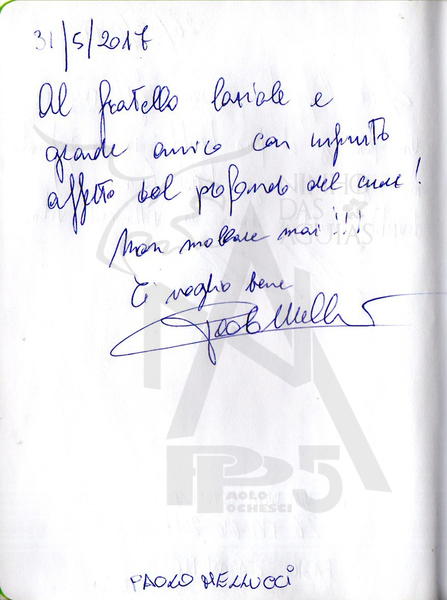 31/5/2017
Al fratello laziale e
grande amico con infinito
affetto dal profondo del cuore!
Non mollare mai!!!
Ti voglio bene
NINHO
DAS
ÁGUIAS
PP5
PAOLO
POCHESCI
PAOLO MELLUCCI